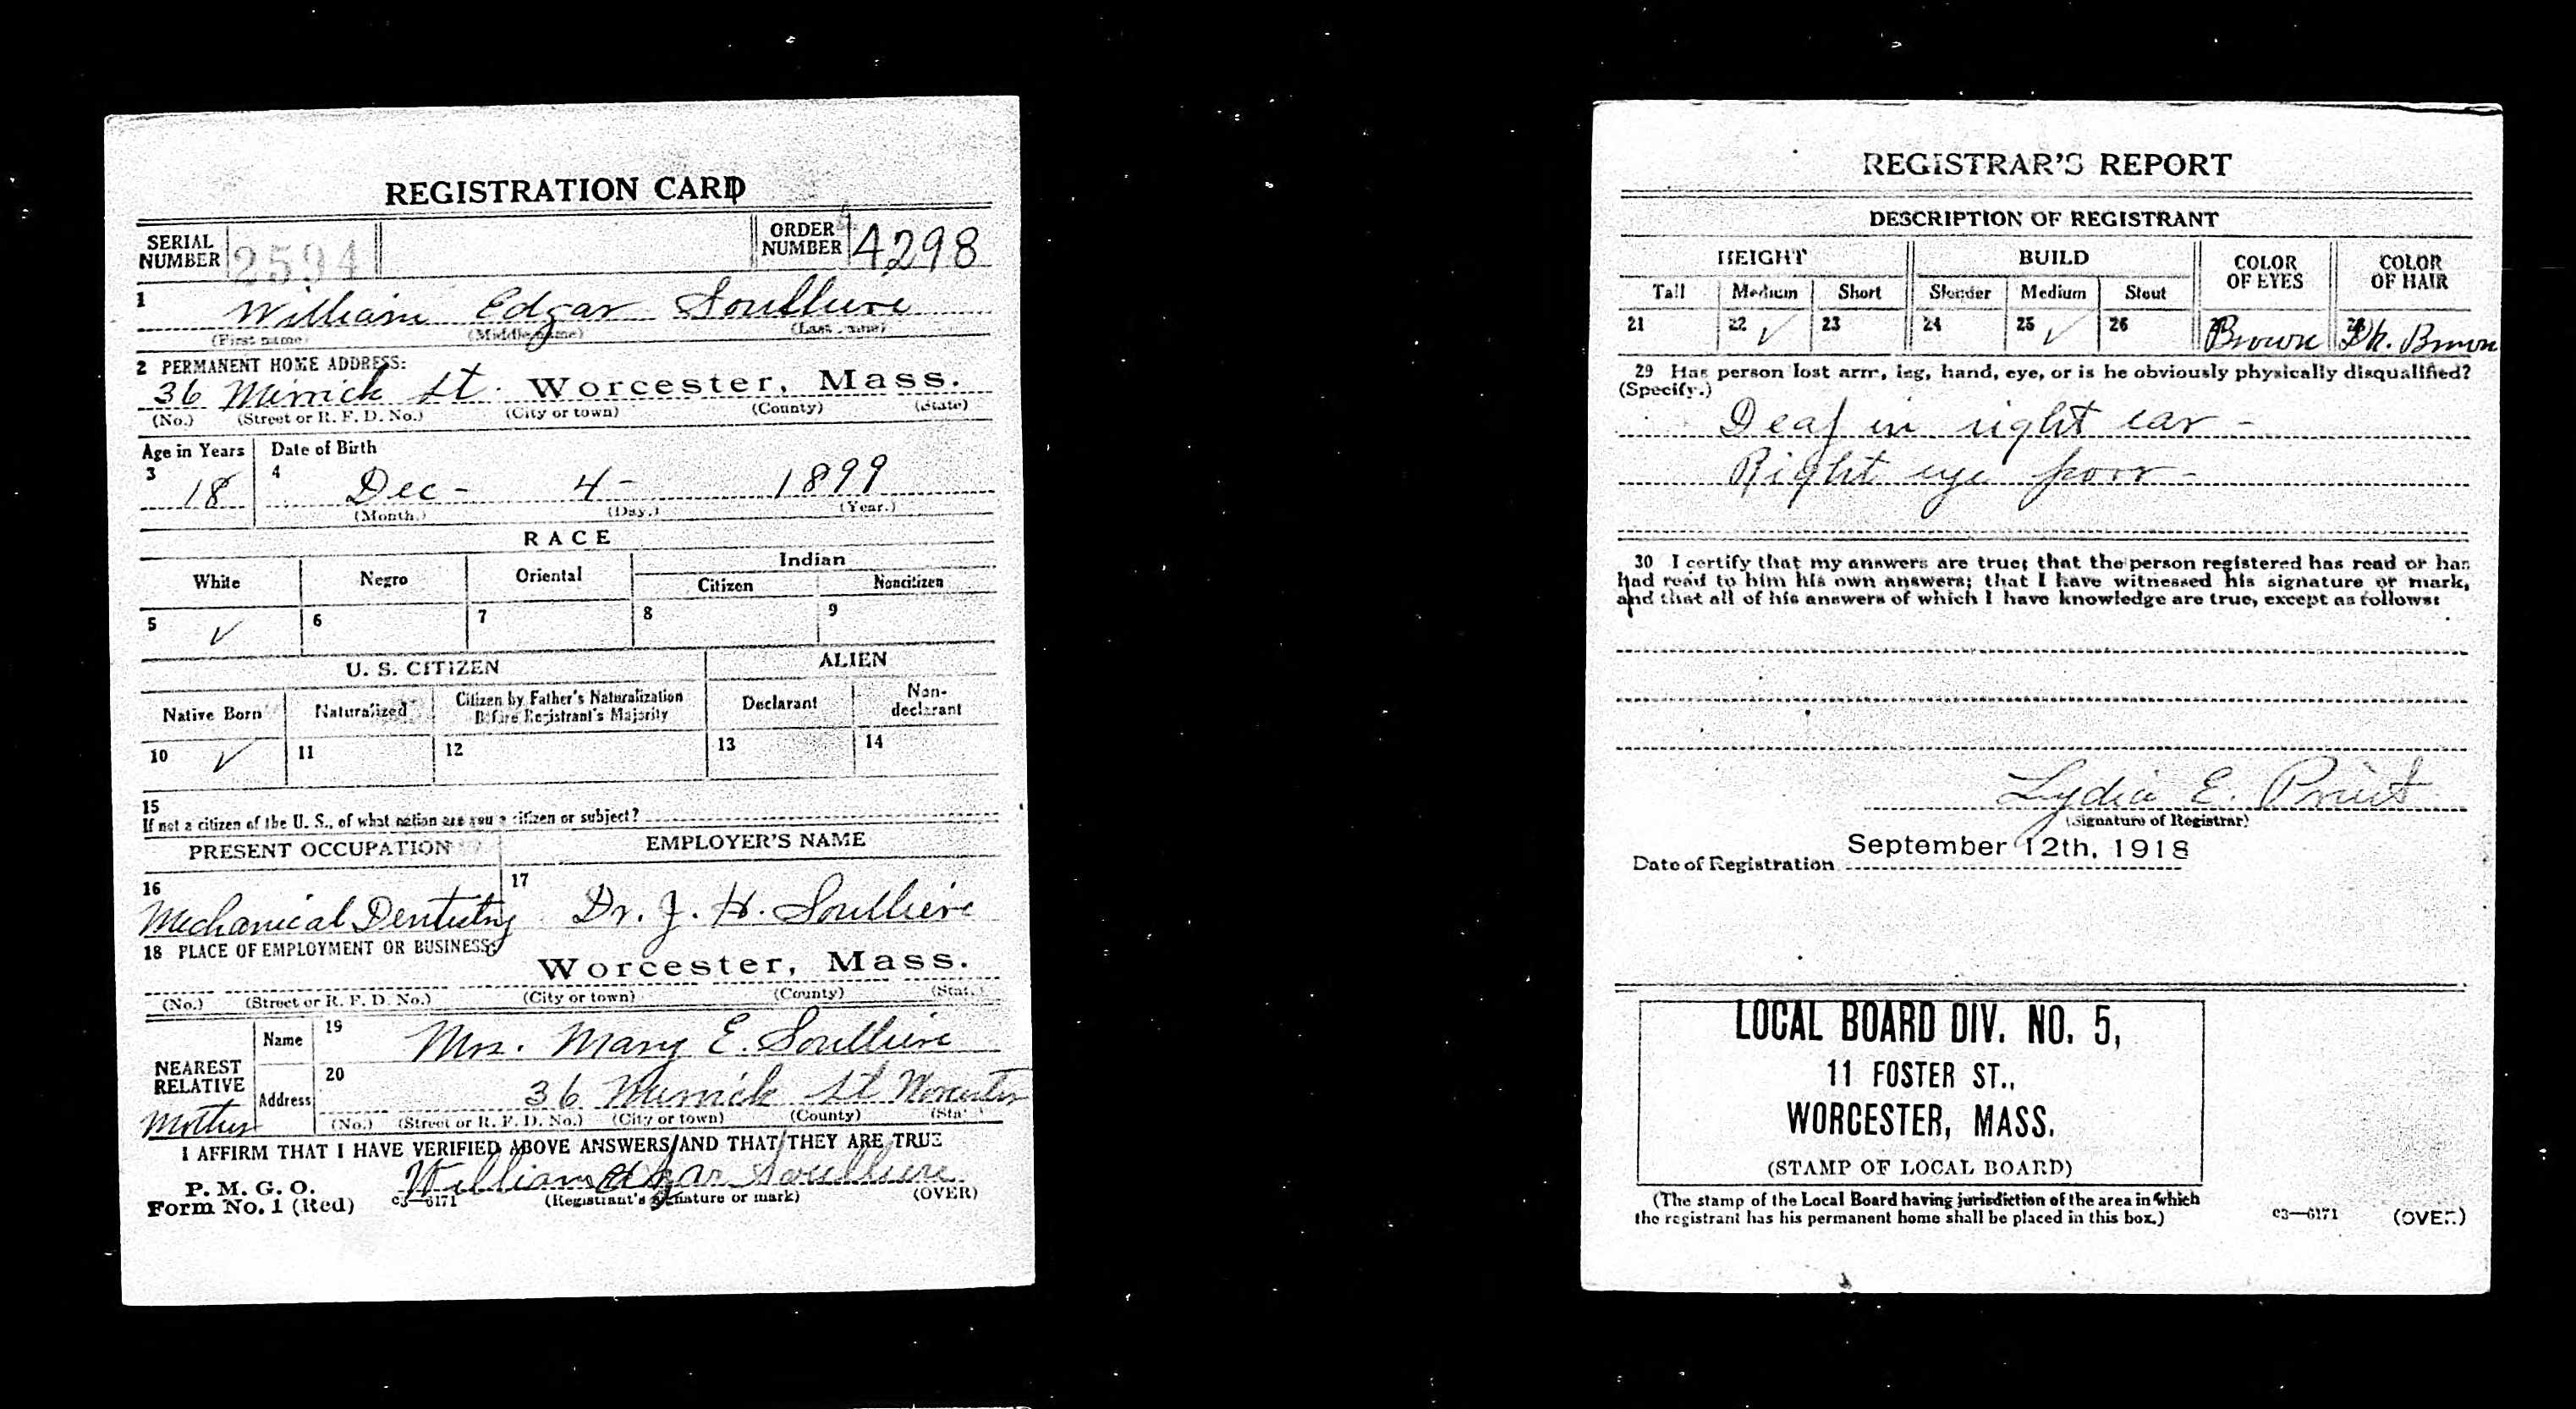 REGISTRATION CARD
SERIAL NUMBER 2594 ORDER NUMBER 4298
1 William Edgar Soulliere
(First name) (Middle name) (Last name)
2 PERMANENT HOME ADDRESS:
36 Merrick St. Worcester, Mass.
(No.) (Street or R. F. D. No.) (City or town) (County) (State)
Age in Years Date of Birth
3 18 4 Dec - 4 - 1899
(Month.) (Day.) (Year.)
RACE
White Negro Oriental Indian
Citizen Noncitizen
5 ✓ 6 7 8 9
U. S. CITIZEN ALIEN
Native Born Naturalized Citizen by Father's Naturalization Before Registrant's Majority Declarant Non-declarant
10 ✓ 11 12 13 14
15
If not a citizen of the U. S., of what nation are you a citizen or subject?
PRESENT OCCUPATION EMPLOYER'S NAME
16 Mechanical Dentistry 17 Dr. J. H. Soulliere
18 PLACE OF EMPLOYMENT OR BUSINESS:
Worcester, Mass.
(No.) (Street or R. F. D. No.) (City or town) (County) (State)
NEAREST RELATIVE Name 19 Mrs. Mary E. Soulliere
Mother Address 20 36 Merrick St Worcester
(No.) (Street or R. F. D. No.) (City or town) (County) (State)
I AFFIRM THAT I HAVE VERIFIED ABOVE ANSWERS AND THAT THEY ARE TRUE
P. M. G. O.
Form No. 1 (Red) c3—6171 William Edgar Soulliere
(Registrant's signature or mark) (OVER)
REGISTRAR'S REPORT
DESCRIPTION OF REGISTRANT
HEIGHT BUILD COLOR OF EYES COLOR OF HAIR
Tall Medium Short Slender Medium Stout
21 22 ✓ 23 24 25 ✓ 26 27 Brown 28 Dk. Brown
29 Has person lost arm, leg, hand, eye, or is he obviously physically disqualified?
(Specify.)
Deaf in right ear -
Right eye poor -
30 I certify that my answers are true; that the person registered has read or has
had read to him his own answers; that I have witnessed his signature or mark,
and that all of his answers of which I have knowledge are true, except as follows:
Lydia E. Priest
(Signature of Registrar)
Date of Registration September 12th, 1918
LOCAL BOARD DIV. NO. 5,
11 FOSTER ST.,
WORCESTER, MASS.
(STAMP OF LOCAL BOARD)
(The stamp of the Local Board having jurisdiction of the area in which
the registrant has his permanent home shall be placed in this box.)
c3—6171 (OVER)